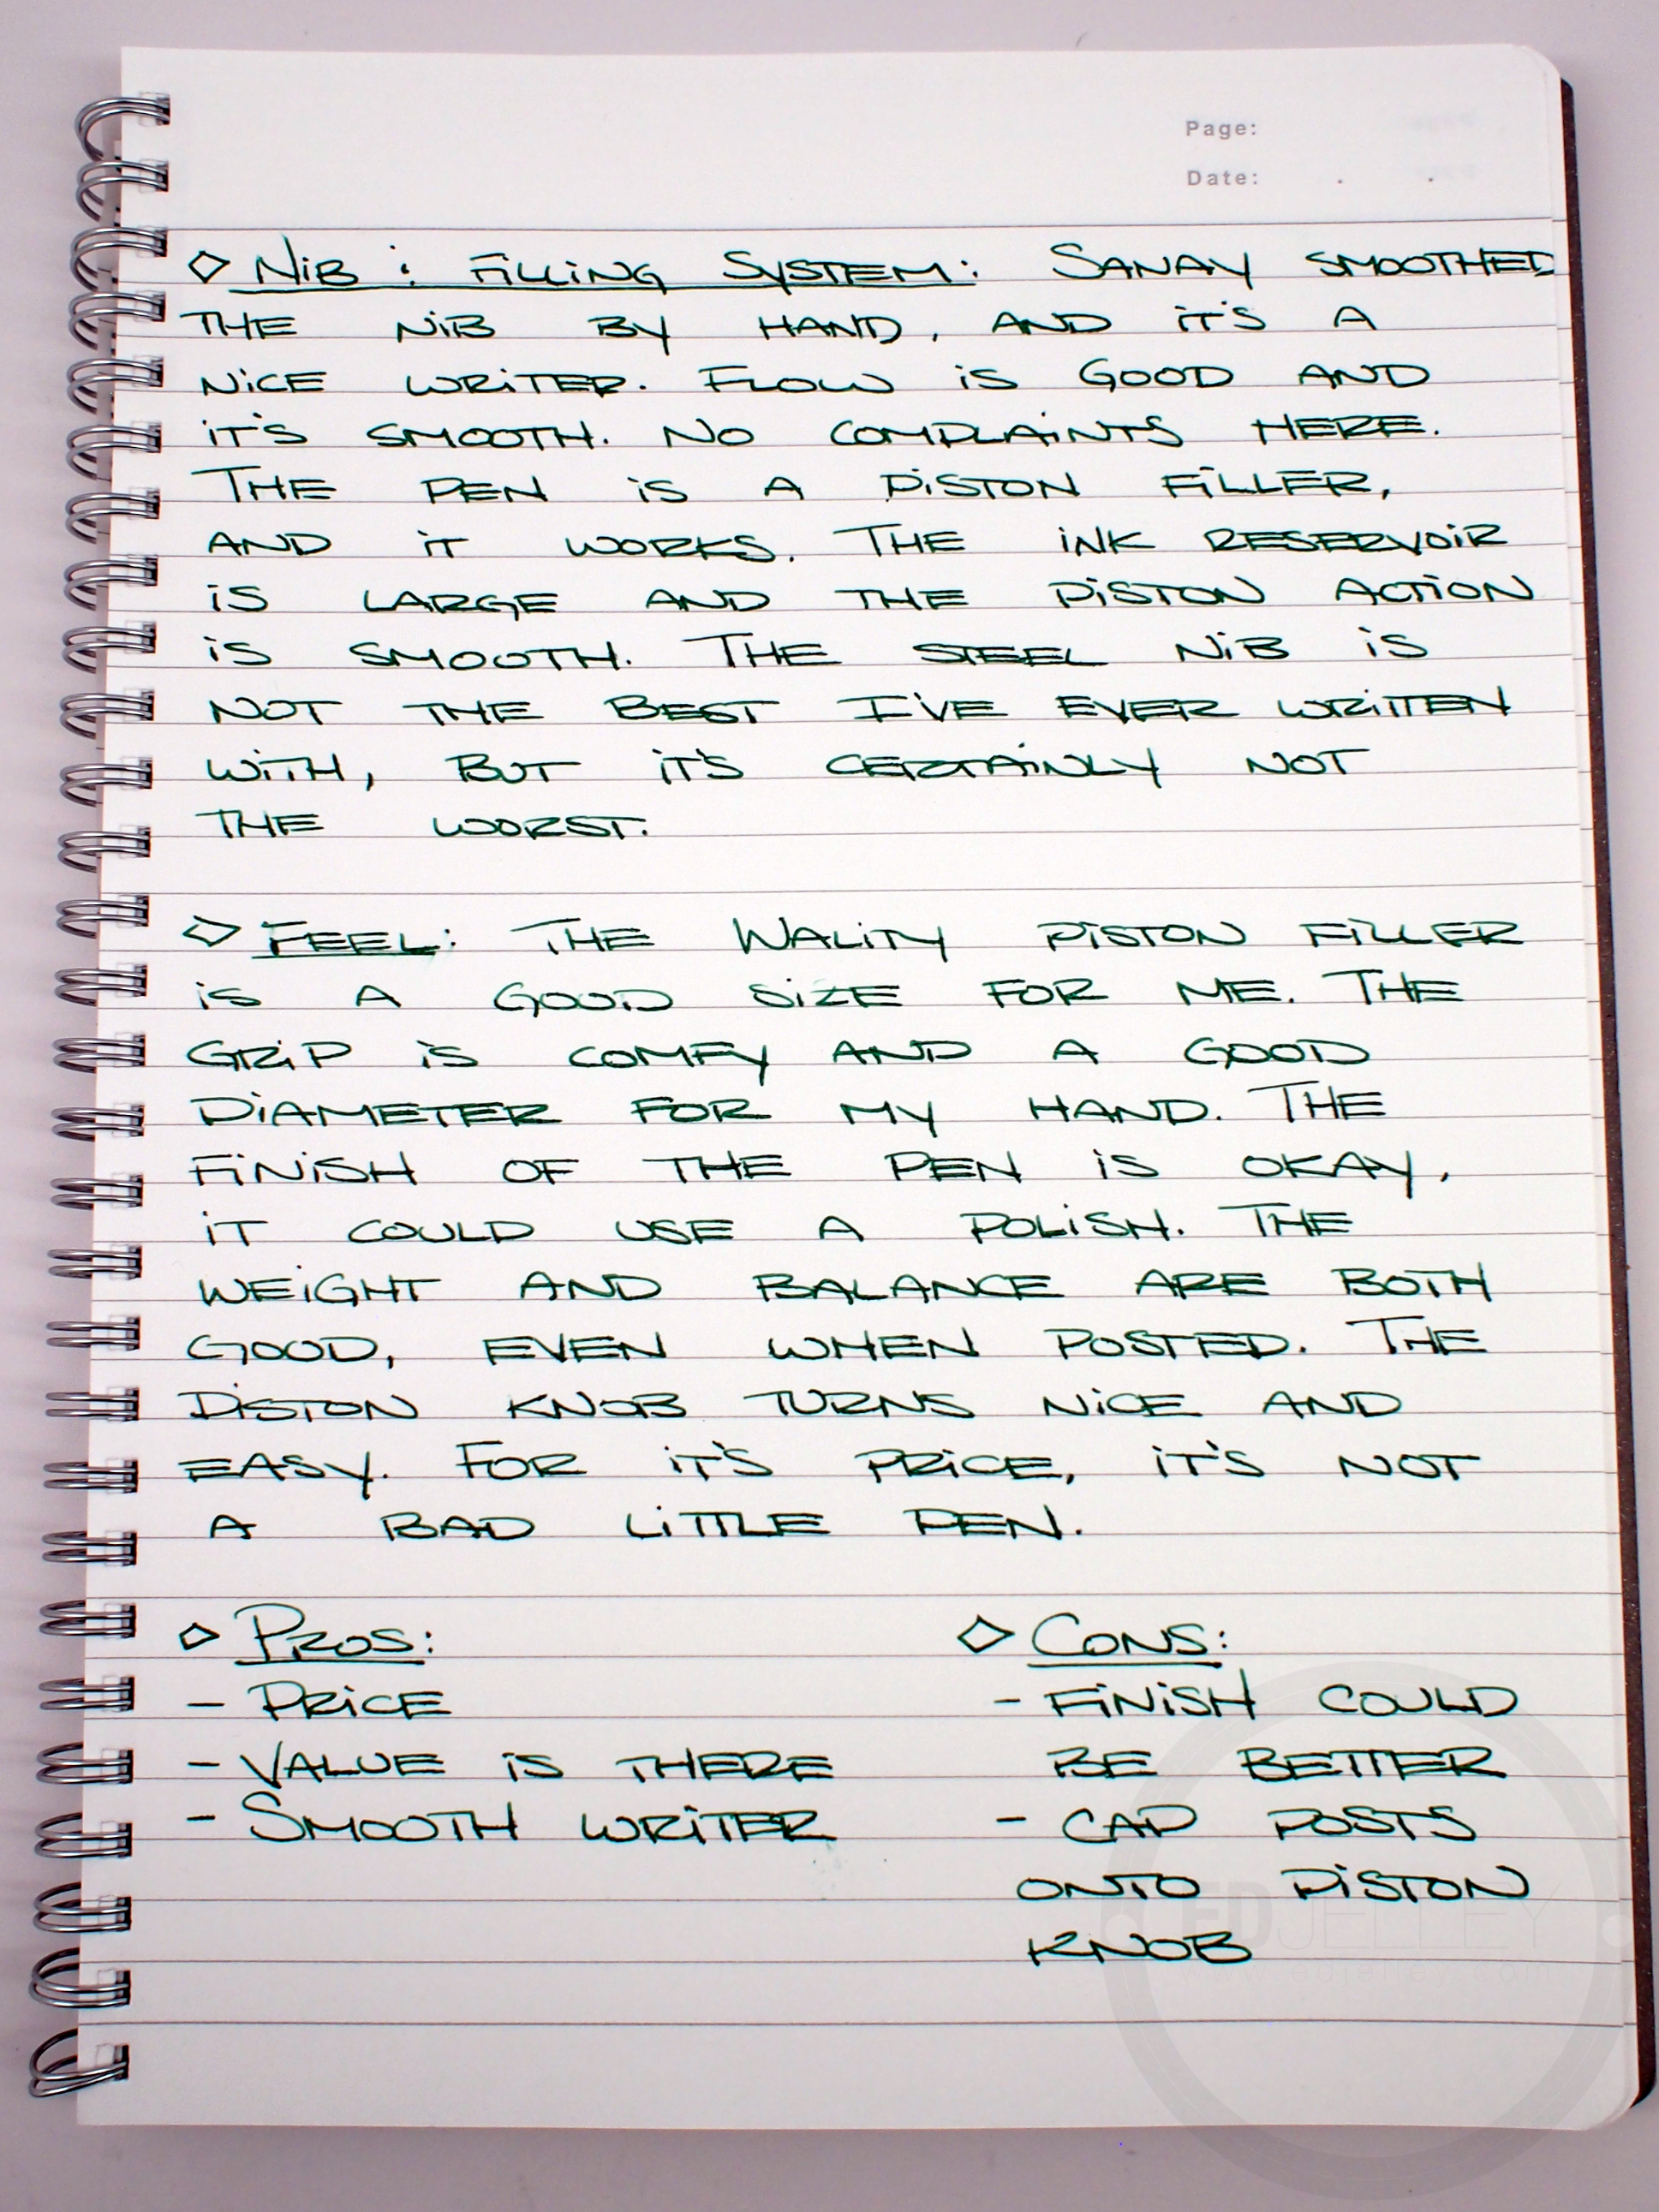 Page:
Date: . .
◇ NiB & FiLLiNG SYSTEM: SANAY SMOOTHED
THE NiB BY HAND, AND iT'S A
NiCE WRiTER. FLOW iS GOOD AND
iT'S SMOOTH. NO COMPLAiNTS HERE.
THE PEN iS A PiSTON FiLLER,
AND iT WORKS. THE iNK RESERVOiR
iS LARGE AND THE PiSTON ACTiON
iS SMOOTH. THE STEEL NiB iS
NOT THE BEST I'VE EVER WRiTTEN
WiTH, BUT iT'S CERTAiNLY NOT
THE WORST.
◇ FEEL: THE WALiTY PiSTON FiLLER
iS A GOOD SiZE FOR ME. THE
GRiP iS COMFY AND A GOOD
DiAMETER FOR MY HAND. THE
FiNiSH OF THE PEN iS OKAY,
iT COULD USE A POLiSH. THE
WEiGHT AND BALANCE ARE BOTH
GOOD, EVEN WHEN POSTED. THE
PiSTON KNOB TURNS NiCE AND
EASY. FOR iT'S PRiCE, iT'S NOT
A BAD LiTTLE PEN.
◇ PROS: ◇ CONS:
- PRiCE - FiNiSH COULD
- VALUE iS THERE BE BETTER
- SMOOTH WRiTER - CAP POSTS
ONTO PiSTON
KNOB
EDJELLEY
edjelley.com